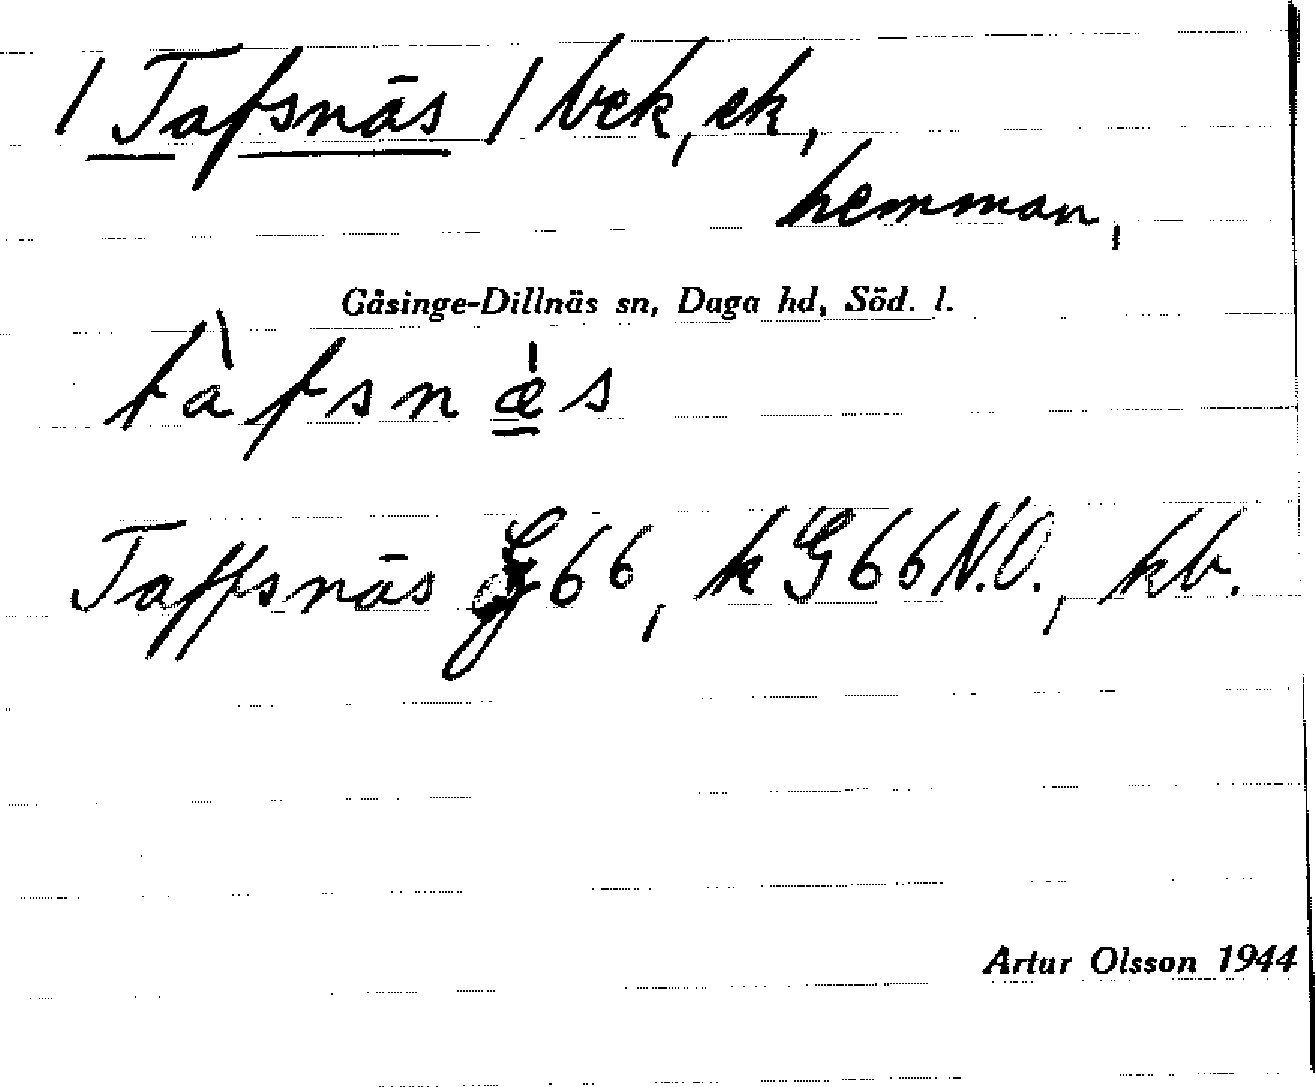 / Tafsnäs / bek, ek,
hemman,
Gåsinge-Dillnäs sn, Daga hd, Söd. l.
tàfsnǽs
Taffsnäs G66, k G66 N.O., kb.
Artur Olsson 1944